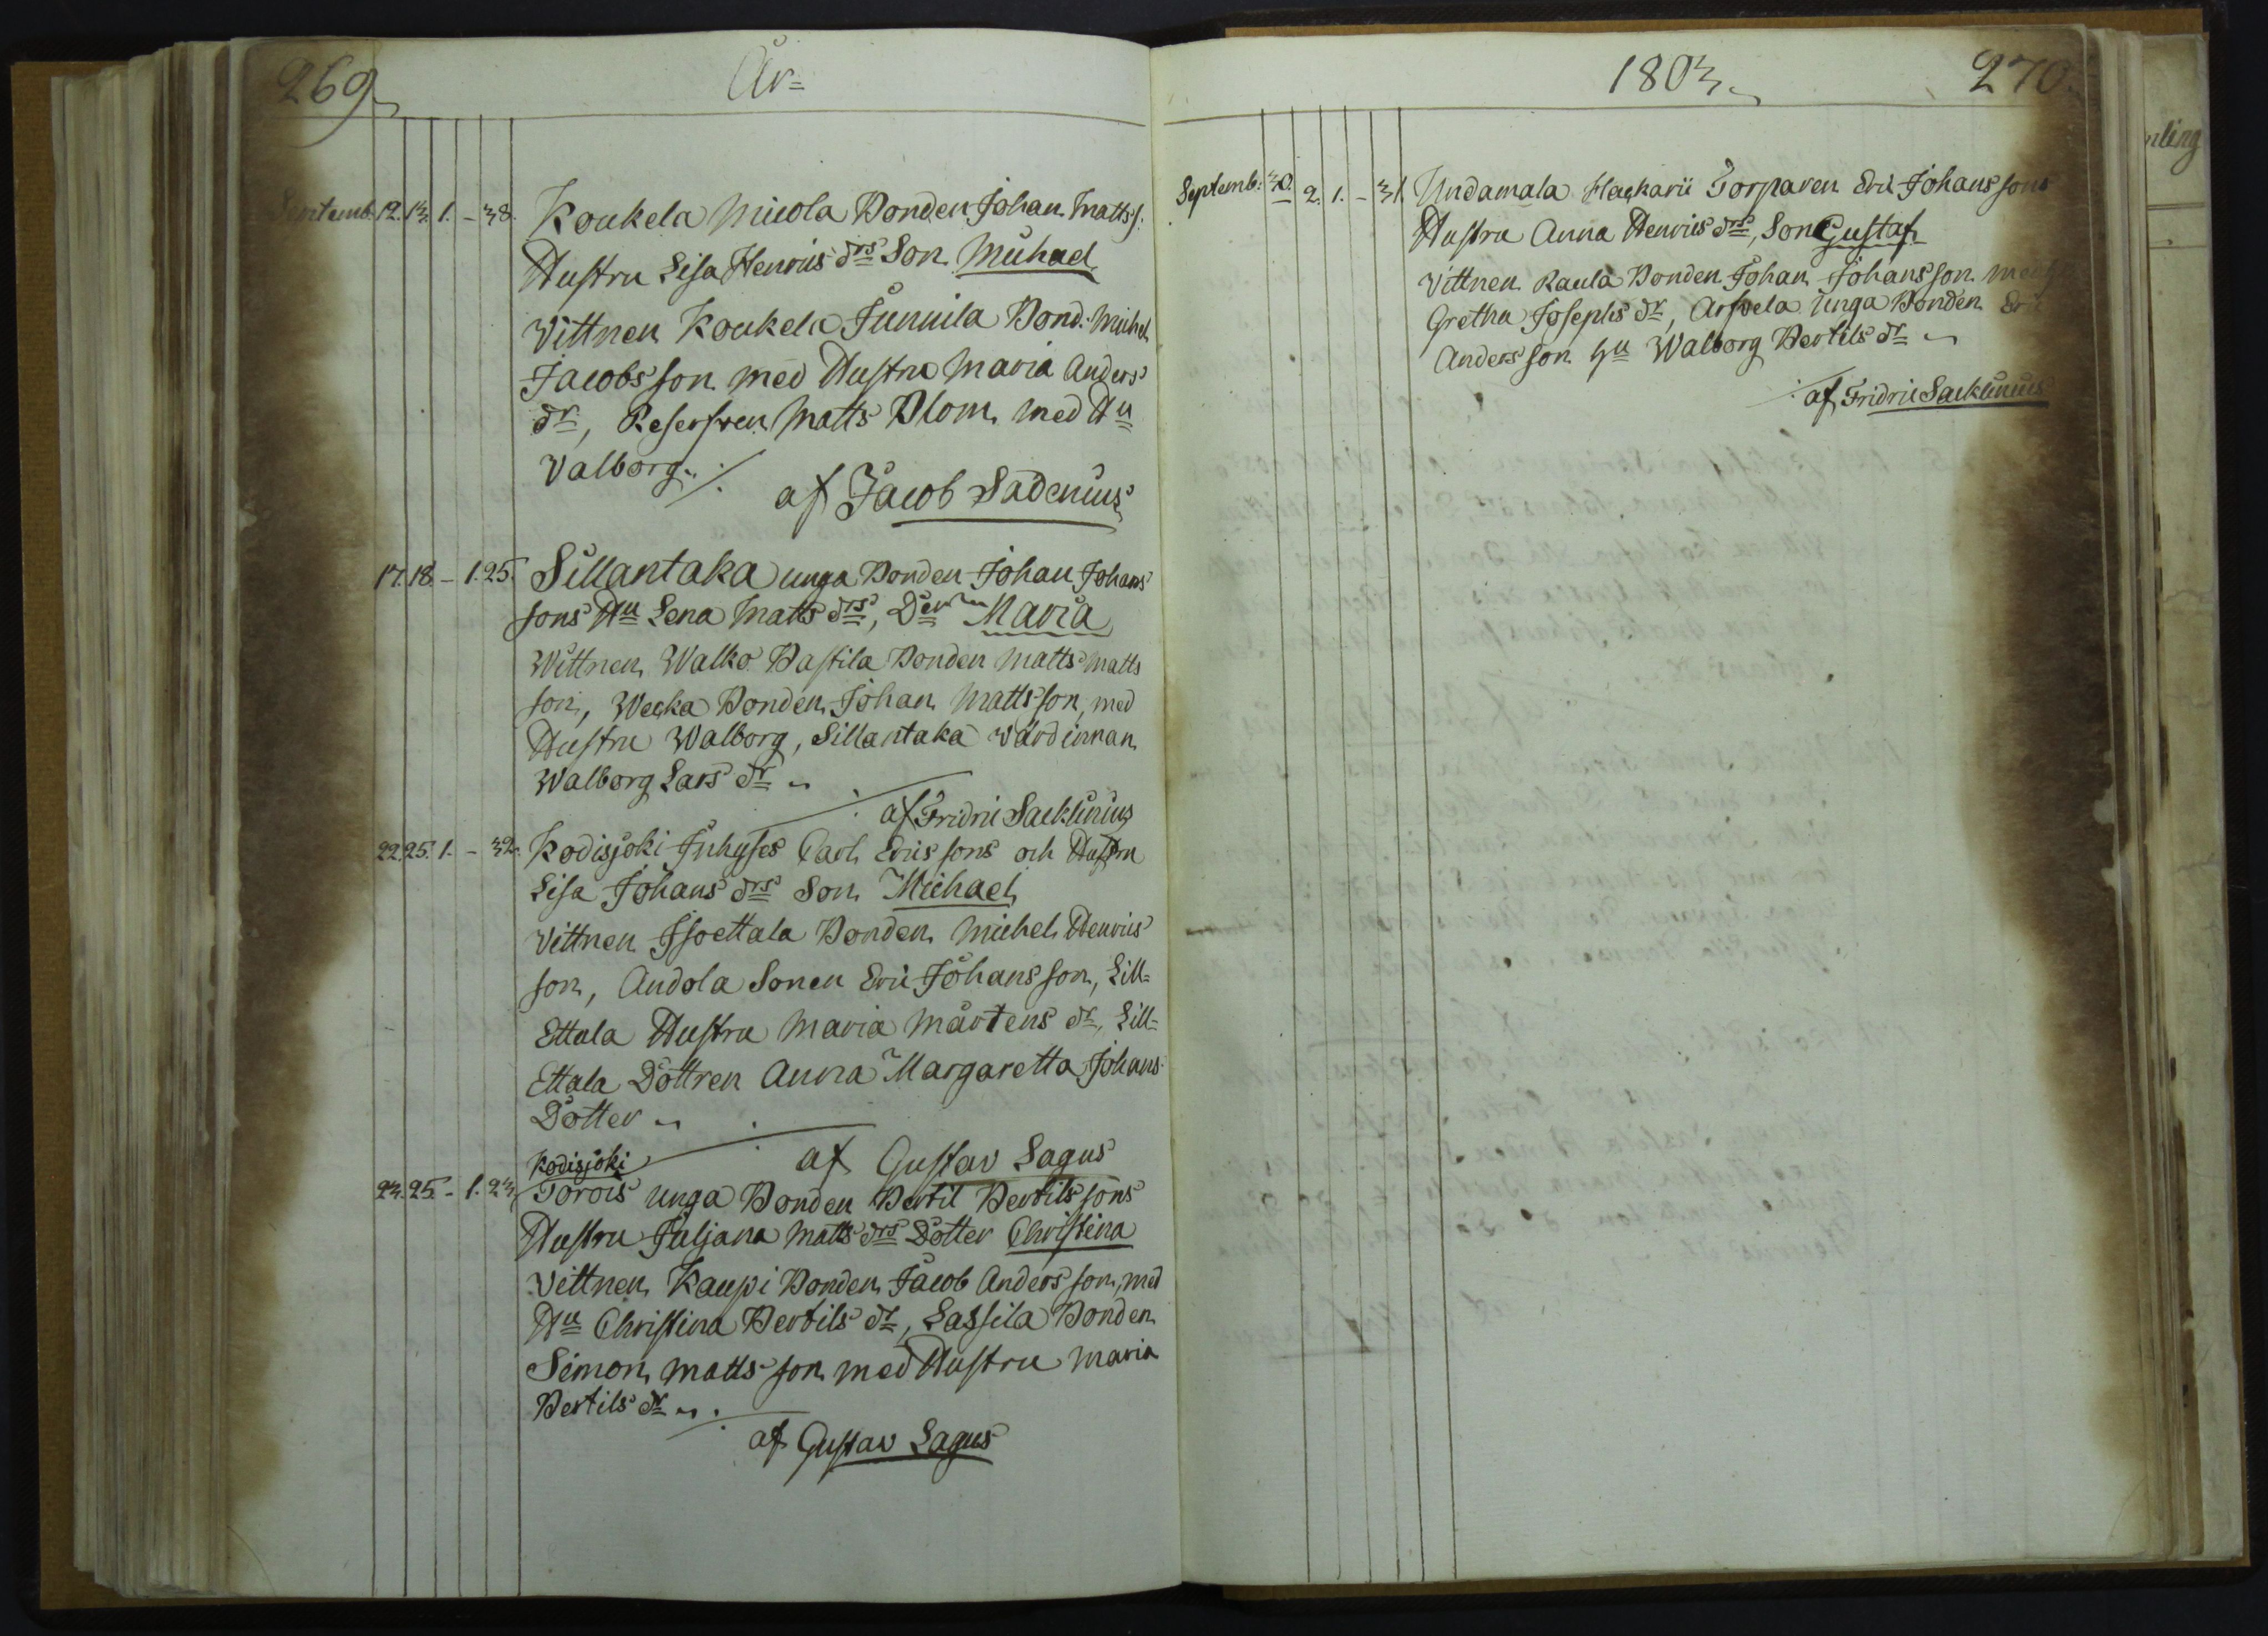 269
År=
Septemb. 12. 13. 1. - 38. Koukela Micola Bonden Johan Matts s.
Hustru Lisa Henrics drs Son Michael
Vittnen Koukela Junnila Bond. Michel
Jacobsson med Hustru Maria Anders
dr, Reserfven Matts Blom med Hu
Valborg ./.
af Jacob Sadenius
17. 18. - 1. 25. Sillantaka unga Bonden Johan Johans
sons Hu Lena Matts drs, Der Maria
Wittnen Walko Pastila Bonden Matts Matts
son, Wecka Bonden Johan Mattsson, med
Hustru Walborg, Sillantaka Wärdinnan
Walborg Lars dr
af Fridric Sacklinius
22. 25. 1. - 32. Kodisjoki Inhyses Carl Ericssons och Hustru
Lisa Johans drs Son Michael
Vittnen Isoettala Bonden Michel Henrics
son, Audola Sonen Eric Johansson, Lill=
Ettala Hustru Maria Mårtens dr, Lill=
Ettala Dottren Anna Margaretta Johans
Dotter
af Gustav Lagus
Kodisjoki
23. 25. - 1. 23. Torois unga Bonden Bertil Bertilssons
Hustru Juljana Matts drs Dotter Christina
Vittnen Kaupi Bonden Jacob Andersson, med
Hu Christina Bertils dr, Lassila Bonden
Simon Mattsson med Hustru Maria
Bertils dr
af Gustav Lagus
1803.
270.
Septemb. 30. 2. 1. - 31. Undamala Hackarii Torparen Eric Johanssons
Hustru Anna Henrics drs, Son Gustaf
Vittnen Raula Bonden Johan Johansson med
Gretha Josephs dr, Arfvela Unga Bonden Eric
Andersson Hu Walborg Bertils dr
af Fridric Sacklinius
nling